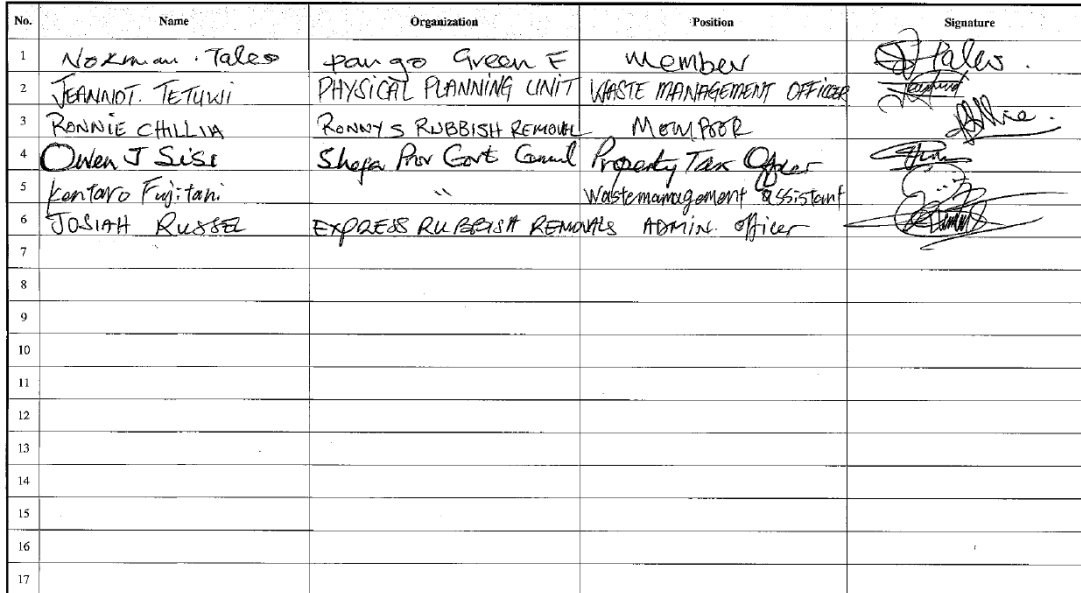 No. Name Organization Position Signature
1 Norman . Taleo pango Green F member Taleo .
2 JEANNOT. TETUWI PHYSICAL PLANNING UNIT WASTE MANAGEMENT OFFICER
3 RONNIE CHILLIA RONNYS RUBBISH REMOVAL
4 Owen J Sisi Shefa Prov Govt Property Tax Officer
5 Kentaro Fujitani " Wastemanagement assistant
6 JOSIAH RUSSEL EXPRESS RUBBISH REMOVALS ADMIN. officer
7
8
9
10
11
12
13
14
15
16
17